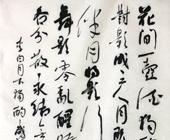 花间一壶酒独酌
對影成三人月
伴月将影
舞影零乱醒时
各分散永结无
李白月下独酌